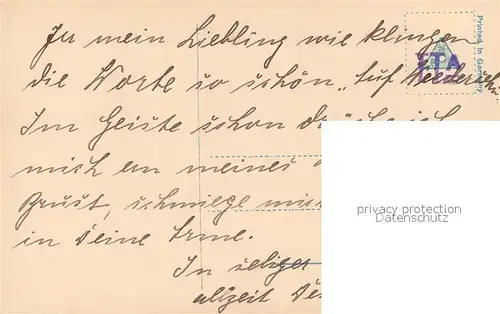 Ja mein Liebling wie klingen
die Worte so schön „Auf Wiedersehn
Im Geiste schon drücke ich
mich an meines
Brust, schmiege mich
in Deine Arme.
In seliger
allzeit Dei
Printed in Germany
ETA
privacy protection
Datenschutz